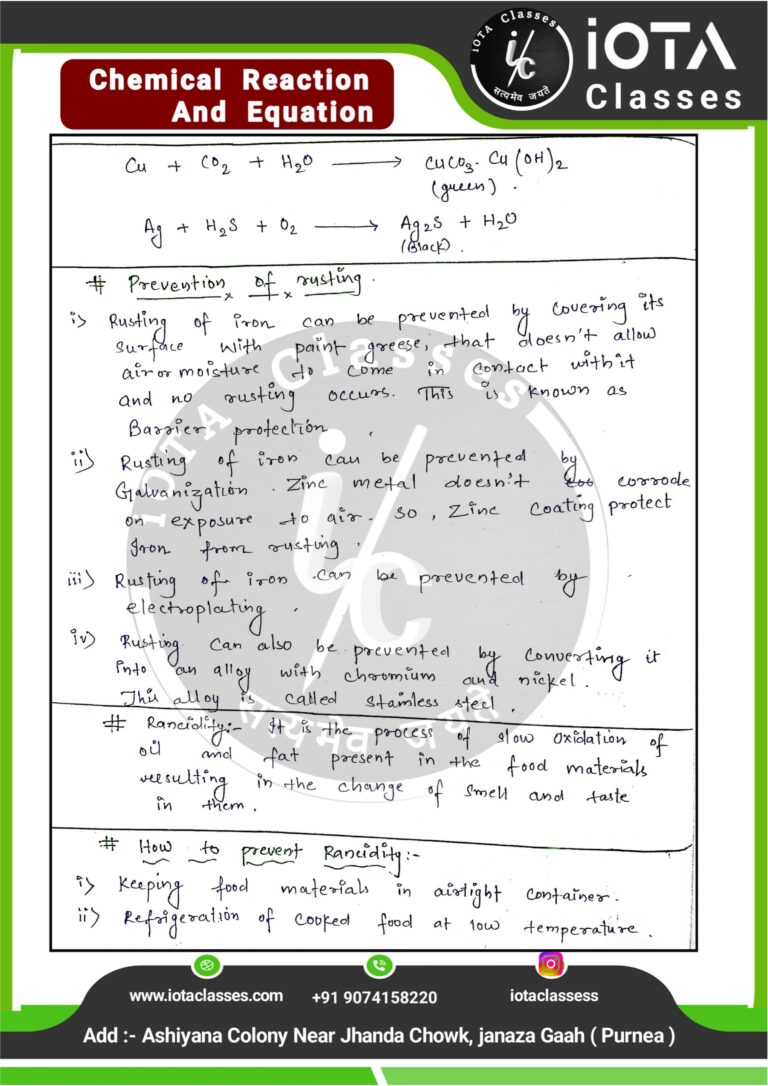 iOTA Classes
i/c
सत्यमेव जयते
iOTA
Classes
Chemical Reaction
And Equation
Cu + CO2 + H2O ⟶ CuCO3. Cu(OH)2
(green).
Ag + H2S + O2 ⟶ Ag2S + H2O
(Black).
# Prevention of rusting.
i) Rusting of iron can be prevented by covering its
surface with paint greese, that doesn't allow
air or moisture to come in contact with it
and no rusting occurs. This is known as
Barrier protection.
ii) Rusting of iron can be prevented by
Galvanization. Zinc metal doesn't corrode
on exposure to air. So, Zinc coating protect
Iron from rusting.
iii) Rusting of iron can be prevented by
electroplating.
iv) Rusting can also be prevented by converting it
into an alloy with chromium and nickel.
This alloy is called stainless steel.
# Rancidity:- It is the process of slow oxidation of
oil and fat present in the food materials
resulting in the change of smell and taste
in them.
# How to prevent Rancidity:-
i) Keeping food materials in airtight container.
ii) Refrigeration of cooked food at low temperature.
iOTA Classes
i/c
सत्यमेव जयते
www.iotaclasses.com
+91 9074158220
iotaclassess
Add :- Ashiyana Colony Near Jhanda Chowk, janaza Gaah ( Purnea )